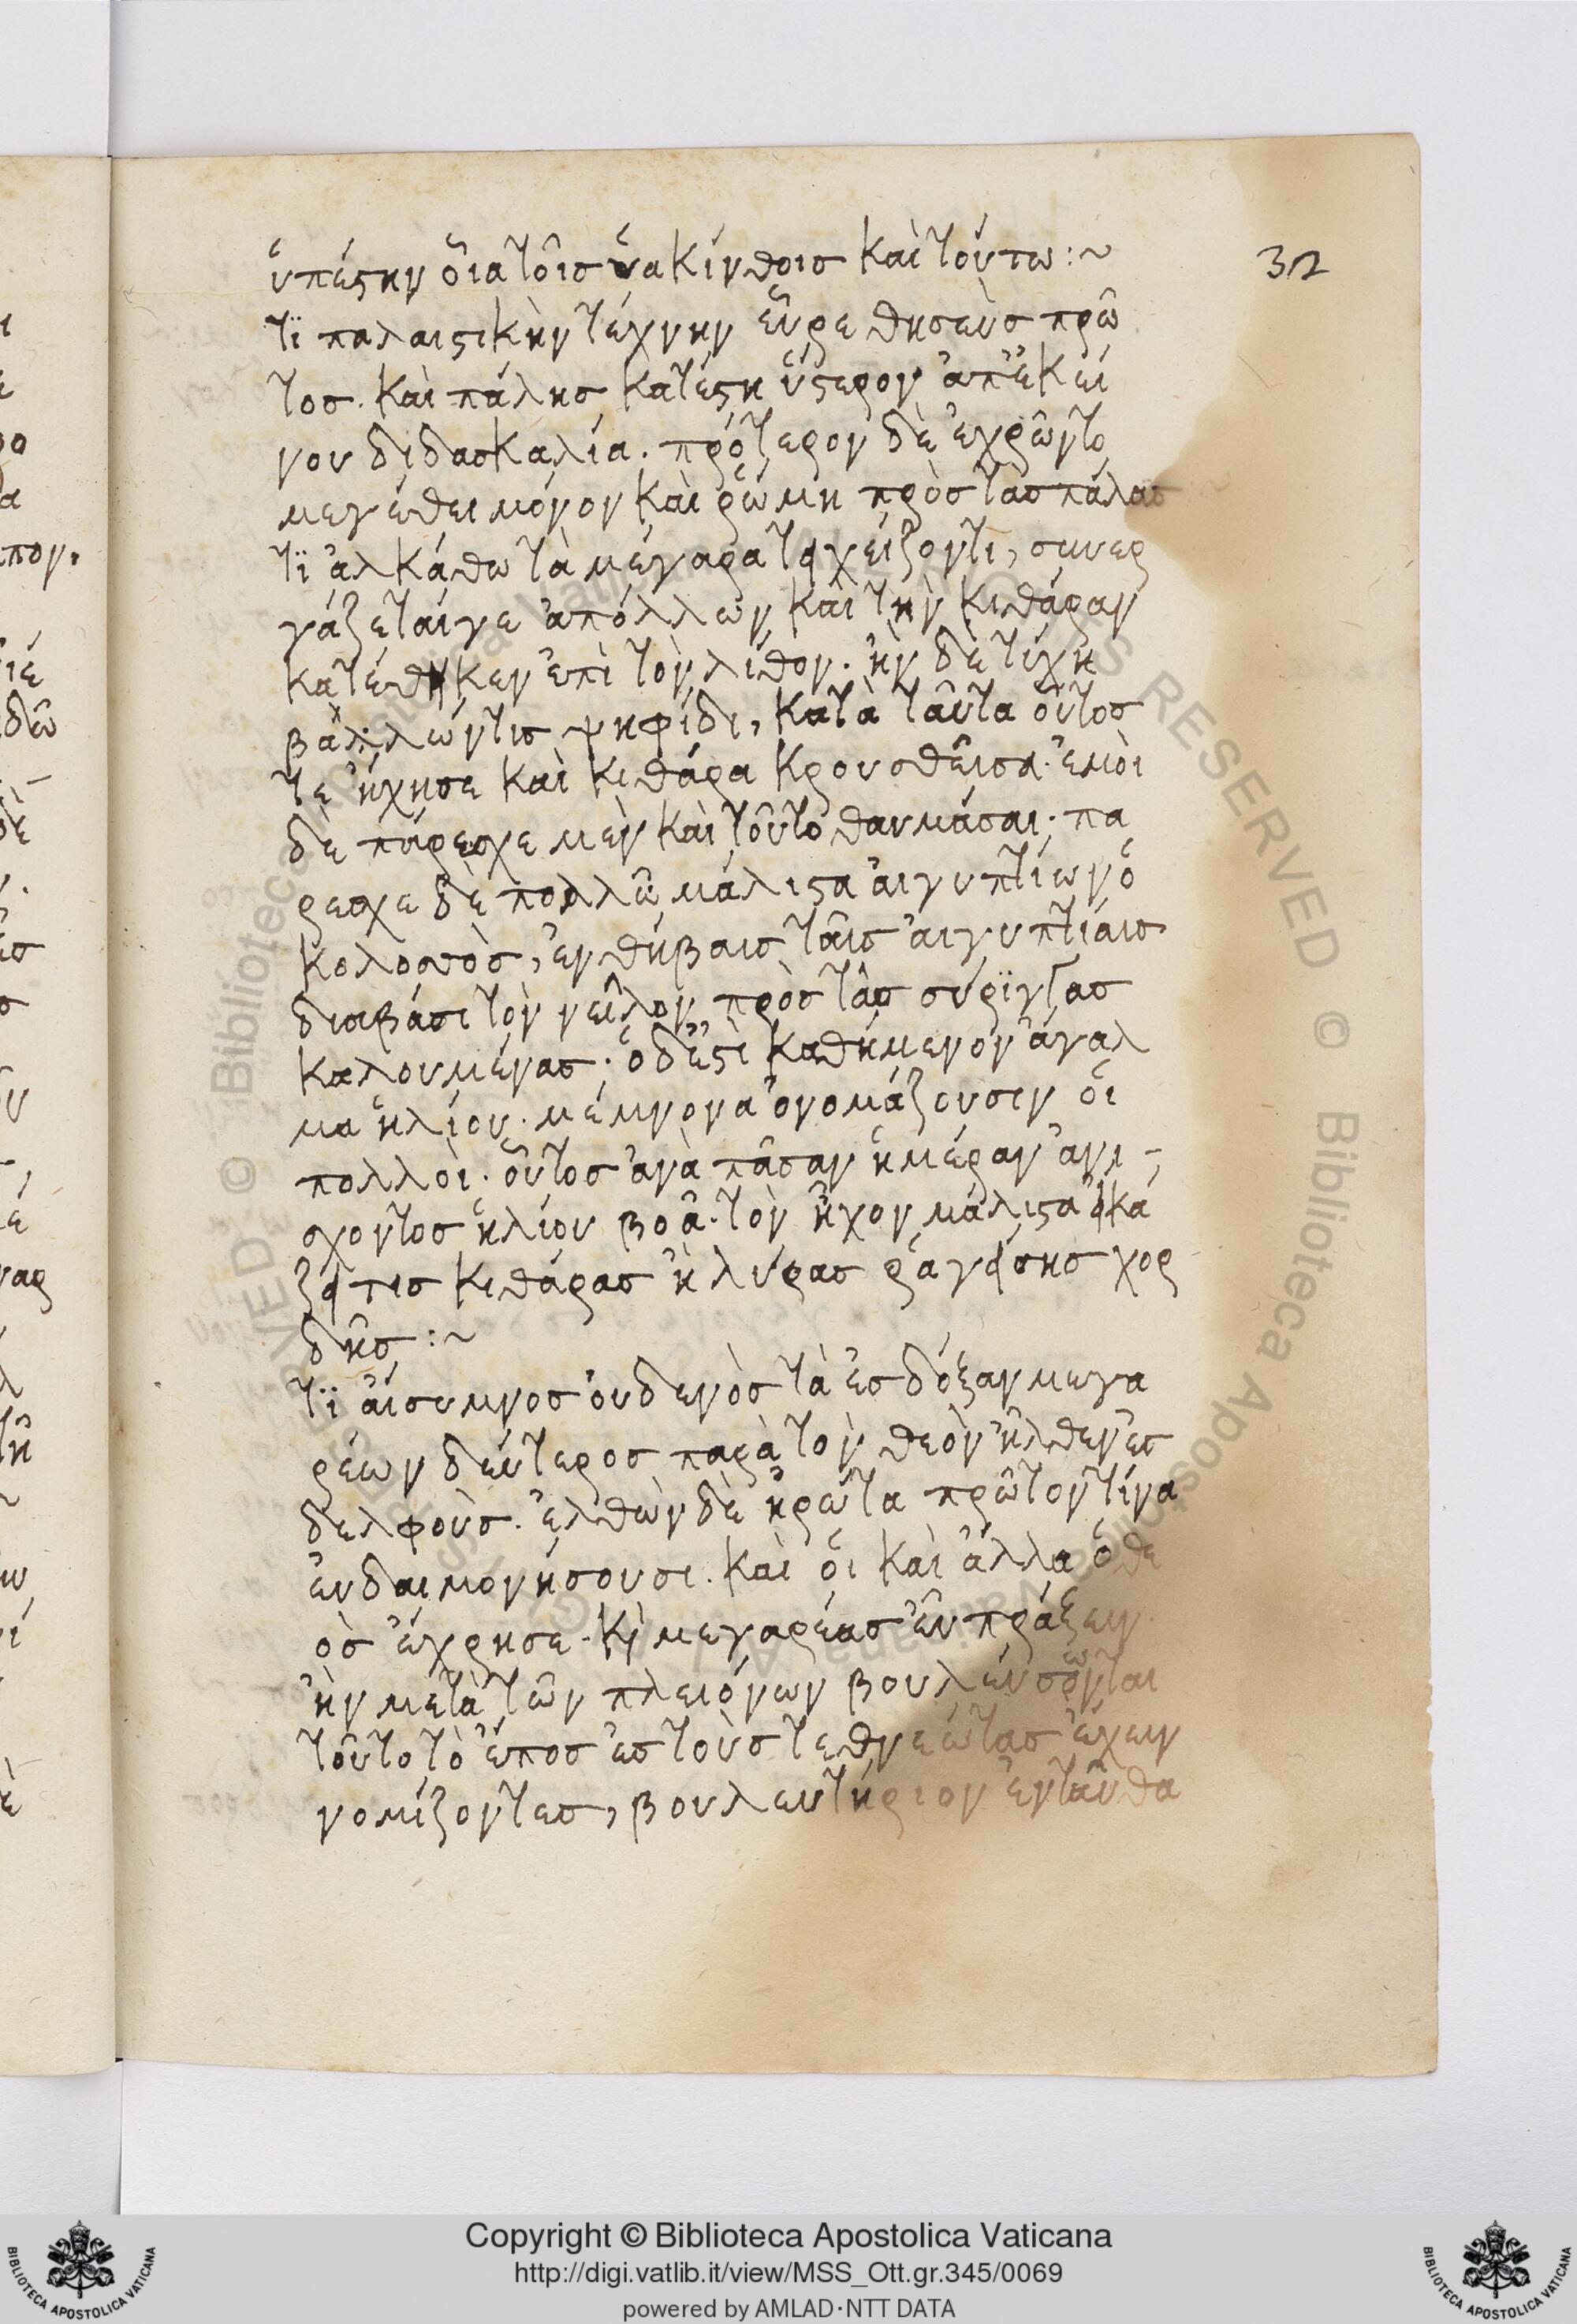 32
ὑπέστην οἷα τοῖς ὑακίνθοις καὶ τούτω :~
τϊ παλαιστικὴν τέχνην εὗρε θησεὺς πρῶ
τος. καὶ πάλης κατέστη ὕστερον ἀπ' ἐκεί
νου διδασκαλία. πρότερον δὲ ἐχρῶντο
μεγέθει μόνον καὶ ῥώμη πρὸς τὰς πάλας
τϊ ἀλκάθω τὰ μέγαρα τειχείζοντι, συνερ
γάζεταί γε ἀπόλλων καὶ τὴν κιθάραν
κατέθηκεν ἐπὶ τὸν λίθον. ἢν δὲ τύχη
βάλλών τις ψηφίδι, κατὰ ταῦτα οὗτος
τε ἤχησε καὶ κιθάρα κρουσθεῖσα. ἐμοὶ
δὲ πάρεσχε μὲν καὶ τοῦτο θαυμάσαι. πα
ρεσχε δὲ πολλῶ μάλιστα αἰγυπτίων ὁ
κολοσσὸς, ἐν θήβαις ταῖς αἰγυπτίαις
διαβάσι τὸν νεῖλον πρὸς τὰς σύριγγας
καλουμένας. ὁ δέ ἐστι καθήμενον ἄγαλ
μα ἡλίου. μέμνονα ὀνομάζουσιν οἱ
πολλοὶ. οὗτος ἀνὰ πᾶσαν ἡμέραν ἀνι-
σχοντος ἡλίου βοᾶ. τὸν ἦχον μάλιστα εἰκά
ζει τις κιθάρας ἢ λύρας ῥαγείσης χορ
δῆς :~
τϊ αἴσυμνος οὐδενὸς τὰ ἐς δόξαν μεγα
ρέων δεύτερος παρὰ τὸν θεὸν ἦλθεν ἐς
δελφοὺς. ἐλθὼν δὲ ἠρώτα πρῶτον τίνα
εὐδαιμονήσουσι. καὶ οἱ καὶ ἄλλα ὁ θε
ὸς ἔχρησε. κὶ μεγαρέας εὖ πράξειν
ἢν μετὰ τῶν πλειόνων βουλεύσωνται
τοῦτο τὸ ἔπος ἐς τοὺς τεθνεώτας ἔχειν
νομίζοντες, βουλευτήριον ἐνταῦθα
Copyright © Biblioteca Apostolica Vaticana
http://digi.vatlib.it/view/MSS_Ott.gr.345/0069
powered by AMLAD·NTT DATA